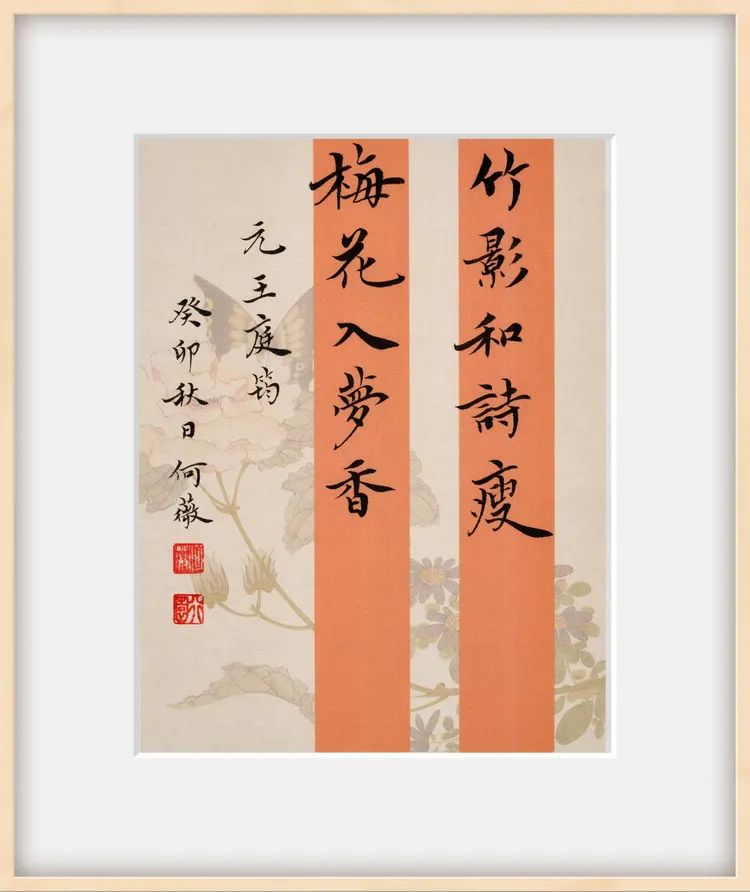 竹影和詩瘦
梅花入夢香
元王庭筠
癸卯秋日何薇